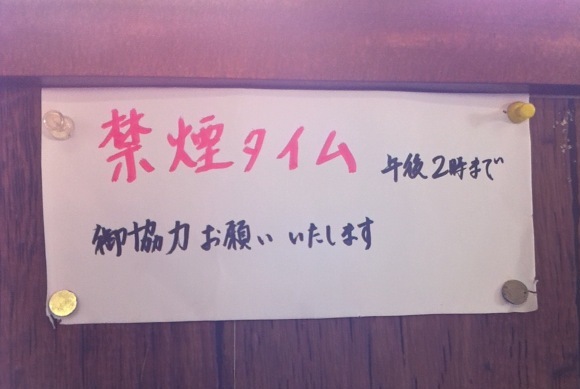 禁煙タイム 午後2時まで
御協力 お願い いたします